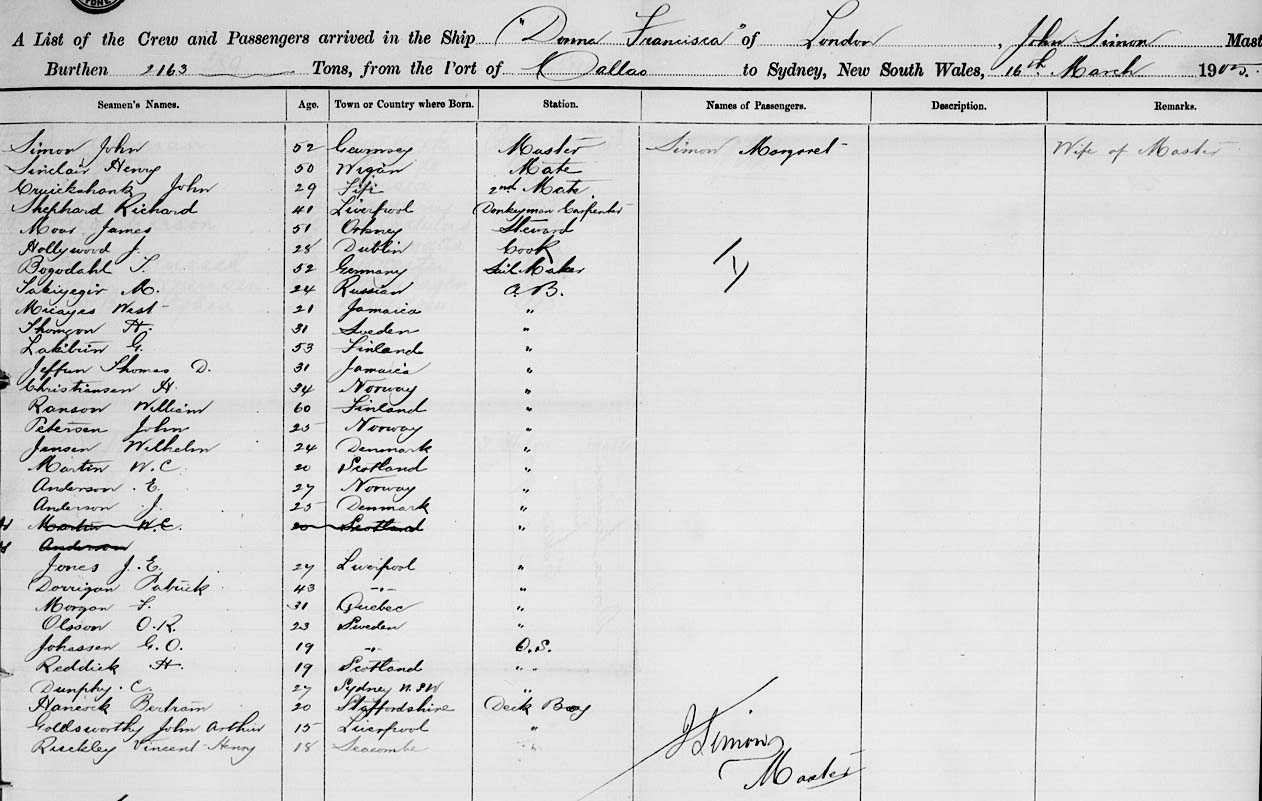 A List of the Crew and Passengers arrived in the Ship "Donna Francisca" of London, John Simon Mast
Burthen 2163 Tons, from the Port of Callao to Sydney, New South Wales, 16th March 1905.
Seamen's Names. Age. Town or Country where Born. Station. Names of Passengers. Description. Remarks.
Simon John 52 Guernsey Master Simon Margaret Wife of Master
Sinclair Henry 50 Wigan Mate
Cruickshank John 29 Fife 2nd Mate
Shephard Richard 41 Liverpool Donkeyman Carpenter
Moar James 51 Orkney Steward
Hollywood J. 28 Dublin Cook
Bogodahl T. 52 Germany Sail Maker
24 Russian A.B.
West 21 Jamaica "
Thomson H. 31 Sweden "
G. 53 Finland "
Thomas D. 31 Jamaica "
Christiansen H. 34 Norway "
Ranson William 60 Finland "
Petersen John 25 Norway "
Jensen Wilhelm 24 Denmark "
Martin W.C. 20 Scotland "
Anderson E. 27 Norway "
Anderson J. 25 Denmark "
Martin W.C. 20 Scotland "
Anderson
Jones J.E. 27 Liverpool "
Dorrigan Patrick 43 -"- "
Morgan T. 31 Quebec "
Olsson O.R. 23 Sweden "
Johassen G.O. 19 -"- O.S.
Reddick H. 19 Scotland " "
Dunphy C. 27 Sydney N.S.W "
Hancock Bertram 20 Staffordshire Deck Boy
Goldsworthy John Arthur 15 Liverpool "
Rickley Vincent Henry 18 Seacombe "
J Simon
Master